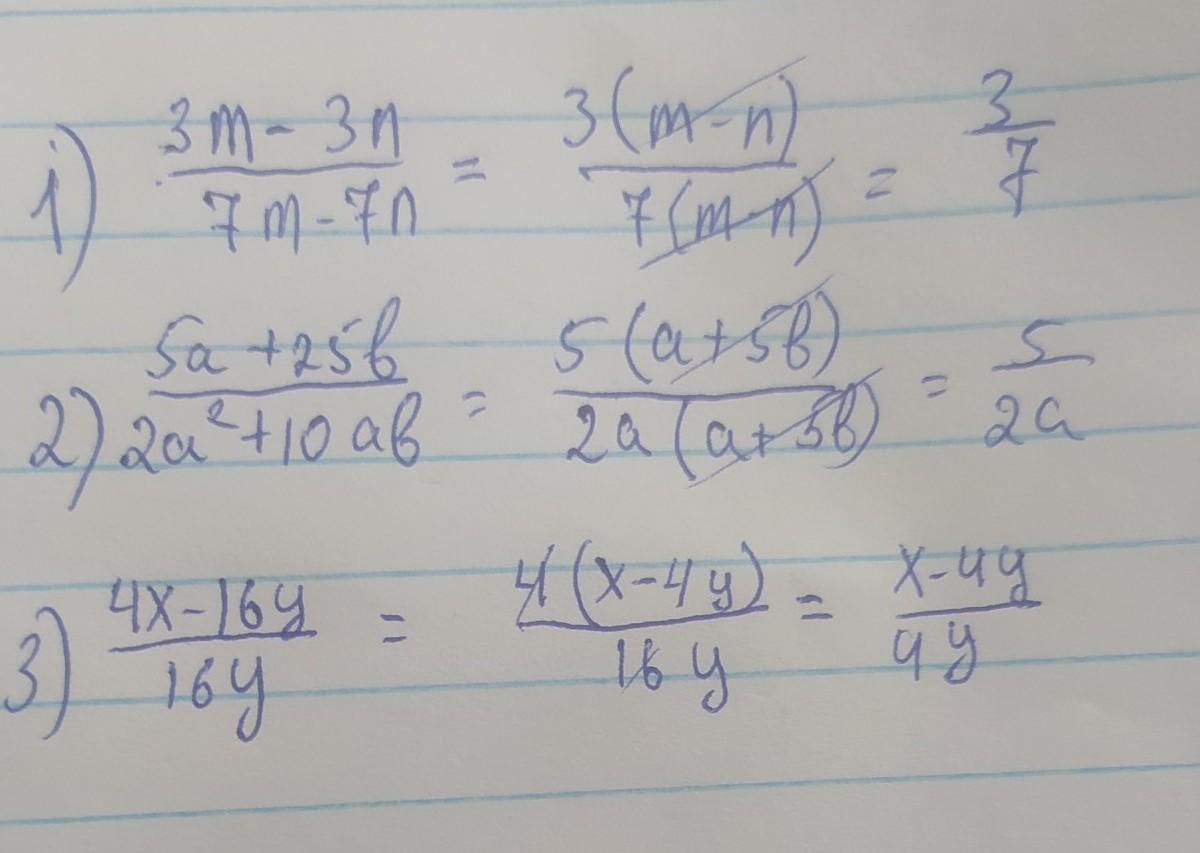 1) (3m - 3n)/(7m - 7n) = 3(m - n)/7(m - n) = 3/7
2) (5a + 25b)/(2a² + 10ab) = 5(a + 5b)/2a(a + 5b) = 5/2a
3) (4x - 16y)/16y = 4(x - 4y)/16y = (x - 4y)/4y